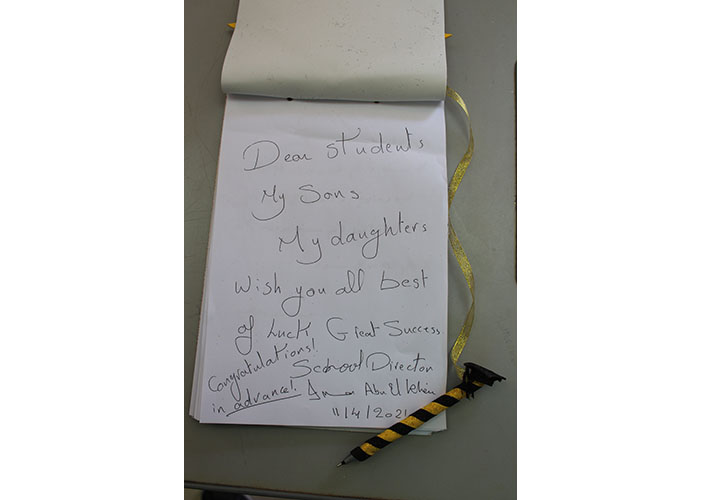 Dear students
My Sons
My daughters
Wish you all best
of Luck Great Success
Congratulations!
in advance!
School Director
Abu El Kheir
11/4/2021